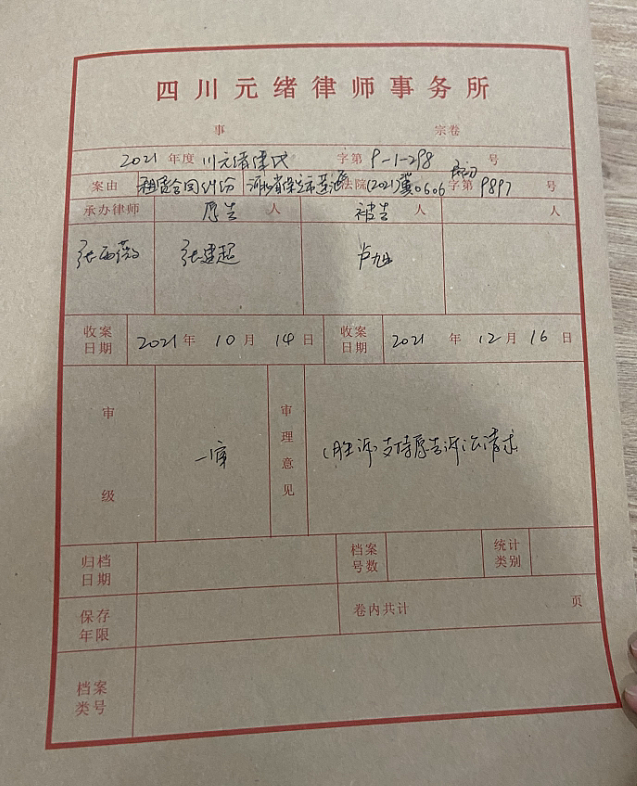 四川元绪律师事务所
事 宗卷
2021 年度 川元绪律民 字第 9-1-298 号
案由 租赁合同纠纷 河北省保定市莲池 法院 (2021)冀0606 民初 字第 9897 号
承办律师 原告 人 被告 人 人
张西 张建超 卢旭
收案日期 2021 年 10 月 14 日 收案日期 2021 年 12 月 16 日
审级 一审 审理意见 (胜诉) 支持原告诉讼请求
归档日期 档案号数 统计类别
保存年限 卷内共计 页
档案类号